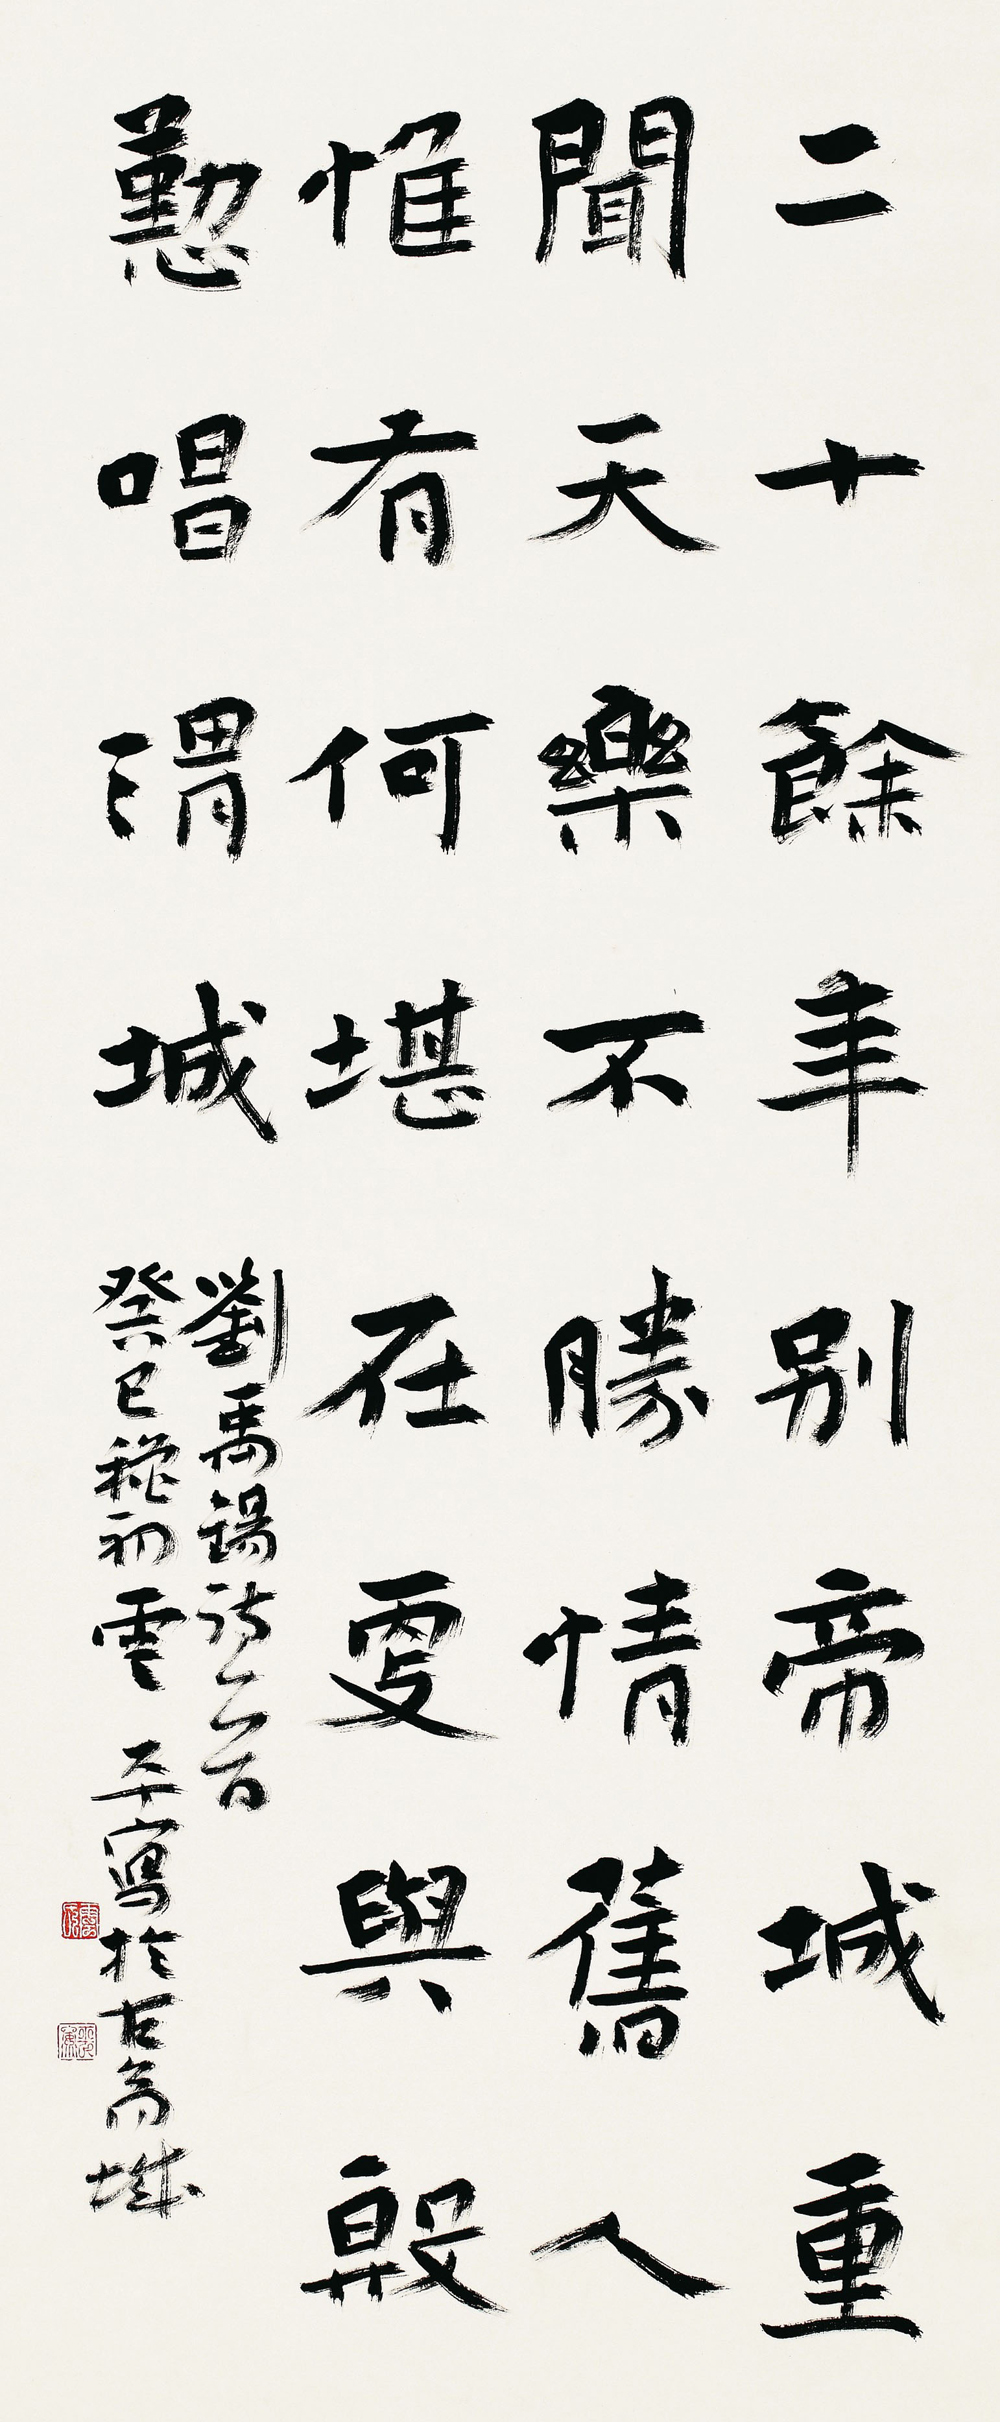 二十餘年別帝城重
聞天樂不勝情舊人
惟有何堪在更與殷
懃唱渭城
劉禹錫詩一首
癸巳穐初雲平寫於古商城